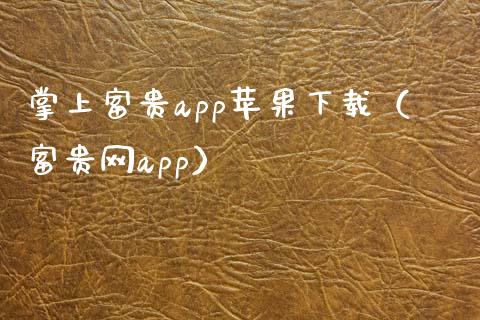 掌上富贵app苹果下载（
富贵网app）